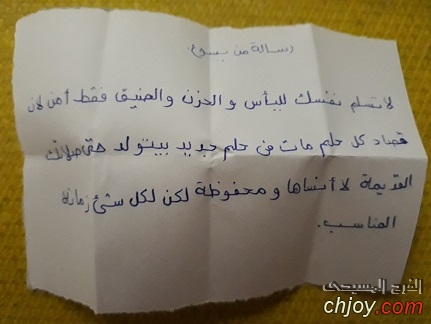 رسالة من يسوع
لا تسلم نفسك لليأس و الحزن و الضيق فقط أمن لان
قصاد كل حلم مات فى حلم جديد بيتولد حتى صلاتك
القديمة لا أنساها و محفوظة لكن لكل شئ زمانه
المناسب.
الفرح المسيحى
chjoy.com